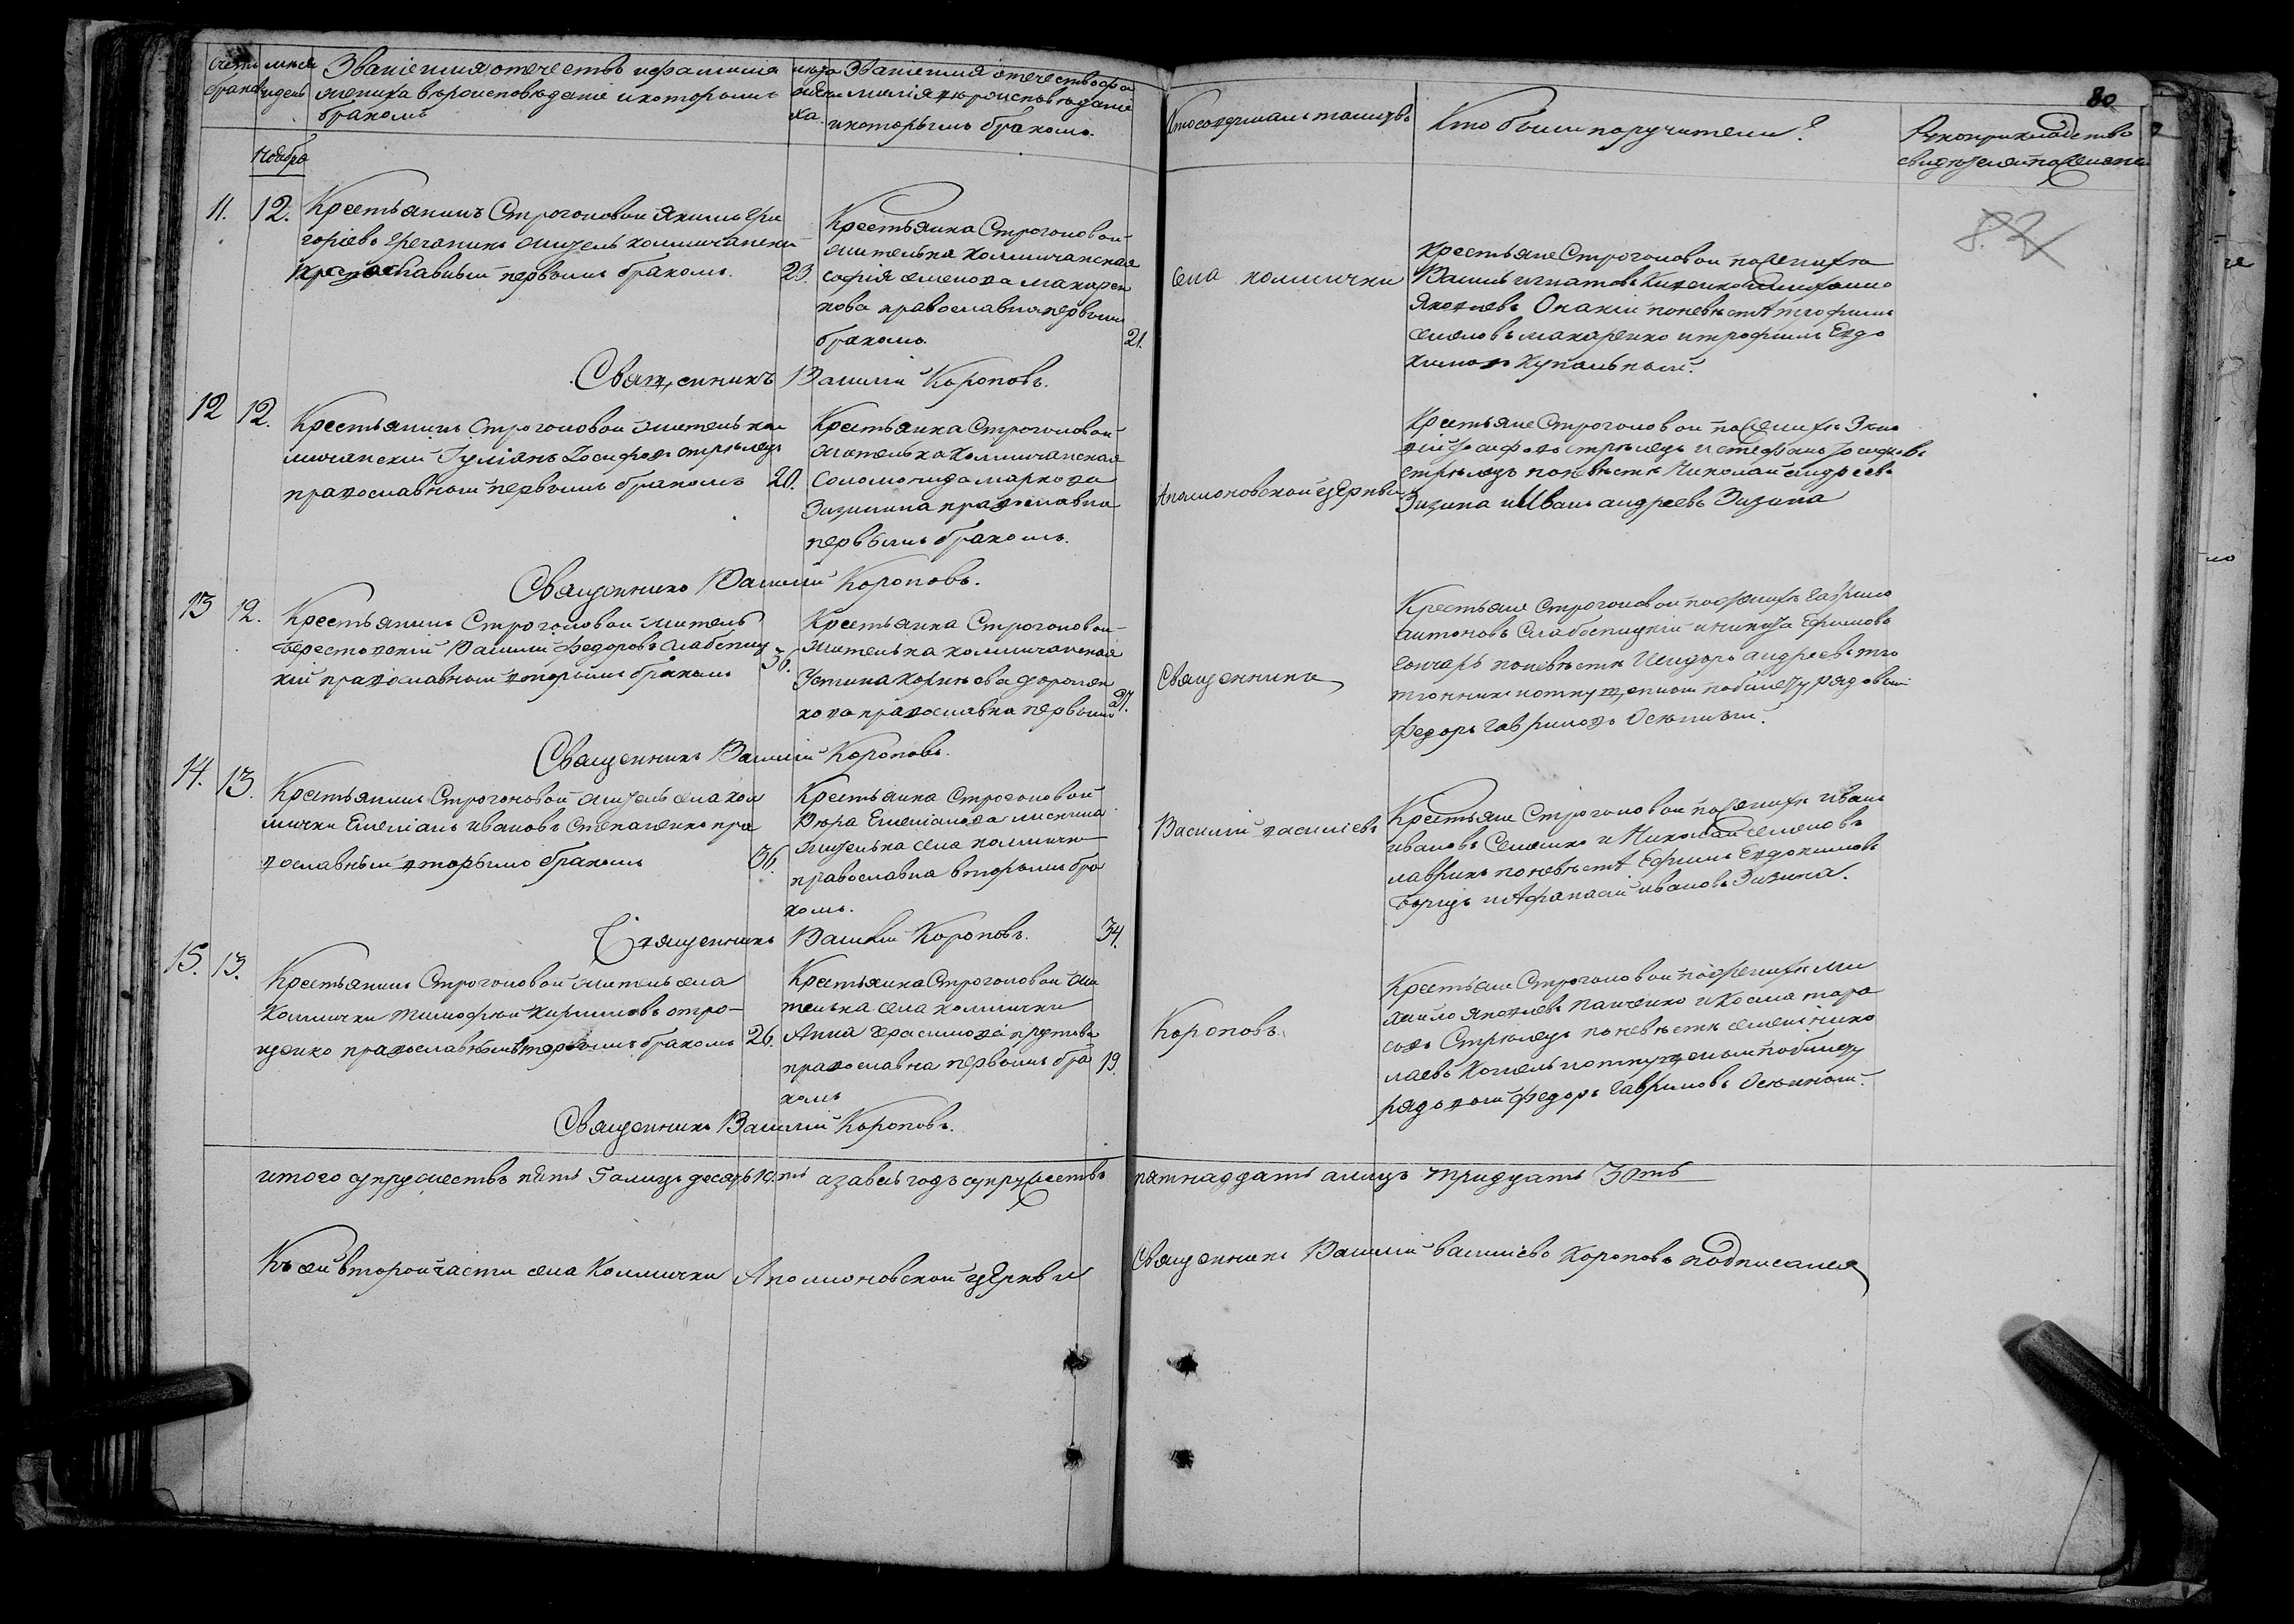 Счетъ браковъ
мѣсяцъ и день
Званіе имя отечество и фамилія
жениха вѣроисповѣданіе и которымъ
бракомъ
Званіе имя отечество фа
милія вѣроисповѣданіе
и которымъ бракомъ.
Кто совершалъ таинство
Кто были поручители?
Рукоприкладство
свидѣтелей по желанію
80
82
Ноября
11. 12.
Крестьянинъ Строгоновой Якимъ Гри
горіевъ Греганинъ житель колмичанскій
православный первымъ бракомъ. 23.
Крестьянка Строгоновой
жителька колмичанская
Софія Семенова Макарен
кова православна первымъ
бракомъ. 21.
села колмички
Крестьяне Строгоновой по женихѣ
Василь Игнатовъ
Яковлевъ по невѣстѣ Трофимъ
Семеновъ Макаренко и Трофимъ Евдо
кимовъ
Священникъ Василій Короповъ.
12 12.
Крестьянинъ Строгоновой житель кол
мичанскій Іуліанъ Іосифовъ Стрѣлецъ
православный первымъ бракомъ 20.
Крестьянка Строгоновой
жителька колмичанская
Соломонида Маркова
Зизинина православна
первымъ бракомъ.
Аполоновской церкви
Крестьяне Строгоновой по женихѣ
Іосифовъ Стрѣлецъ и Стефанъ Іосифовъ
Стрѣлецъ по невѣстѣ Николай Андреевъ
Зизина и Иванъ Андреевъ Зизина
Священникъ Василій Короповъ.
13 12.
Крестьянинъ Строгоновой житель
берестовскій Василій Федоровъ Слабоспиц
кій православный вторымъ бракомъ 36.
Крестьянка Строгоновой
жителька колмичанская
Устина Корнѣева Дорошен
кова православна первымъ 27.
Священникъ
Крестьяне Строгоновой по женихѣ Гаврило
Антоновъ Слабоспицкій и Никита Ефимовъ
Гончаръ по невѣстѣ Исидоръ Андреевъ
и отпущенный по билету рядовый
Федоръ Гавриловъ Осюпный.
Священникъ Василій Короповъ.
14. 13.
Крестьянинъ Строгоновой житель села кол
мички Емеліанъ Ивановъ Степаненко пра
вославный вторымъ бракомъ 36.
Крестьянка Строгоновой
Вѣра Емеліанова
жителька села колмички
православна вторымъ бра
комъ. 34.
Василій Василіевъ
Крестьяне Строгоновой по женихѣ Иванъ
Ивановъ Семенко и Николай Семеновъ
Лаврикъ по невѣстѣ Ефимъ Евдокимовъ
Борицъ и Афанасій Ивановъ Зизина.
Священникъ Василій Короповъ.
15. 13.
Крестьянинъ Строгоновой житель села
Колмички Тимофѣй Кириловъ Отро-
щенко православный вторымъ бракомъ 26.
Крестьянка Строгоновой жи
телька села колмички
Анна Герасимова Прутова
православна первымъ бра 19.
комъ
Короповъ.
Крестьяне Строгоновой по женихѣ Ми
хаило Яковлевъ Панченко и Косма Тара
совъ Стрѣлецъ по невѣстѣ Семенъ Нико
лаевъ Кошель и отпущеный по билету
рядовой Федоръ Гавриловъ Осюпный.
Священникъ Василій Короповъ.
итого супружествъ пять 5 а лицъ десять 10. ть а за весь годъ супружествъ пятнадцать а лицъ тридцать 30ть
Къ сей второй части села Колмички Аполоновской церкви Священникъ Василій Василіевъ Короповъ подписался